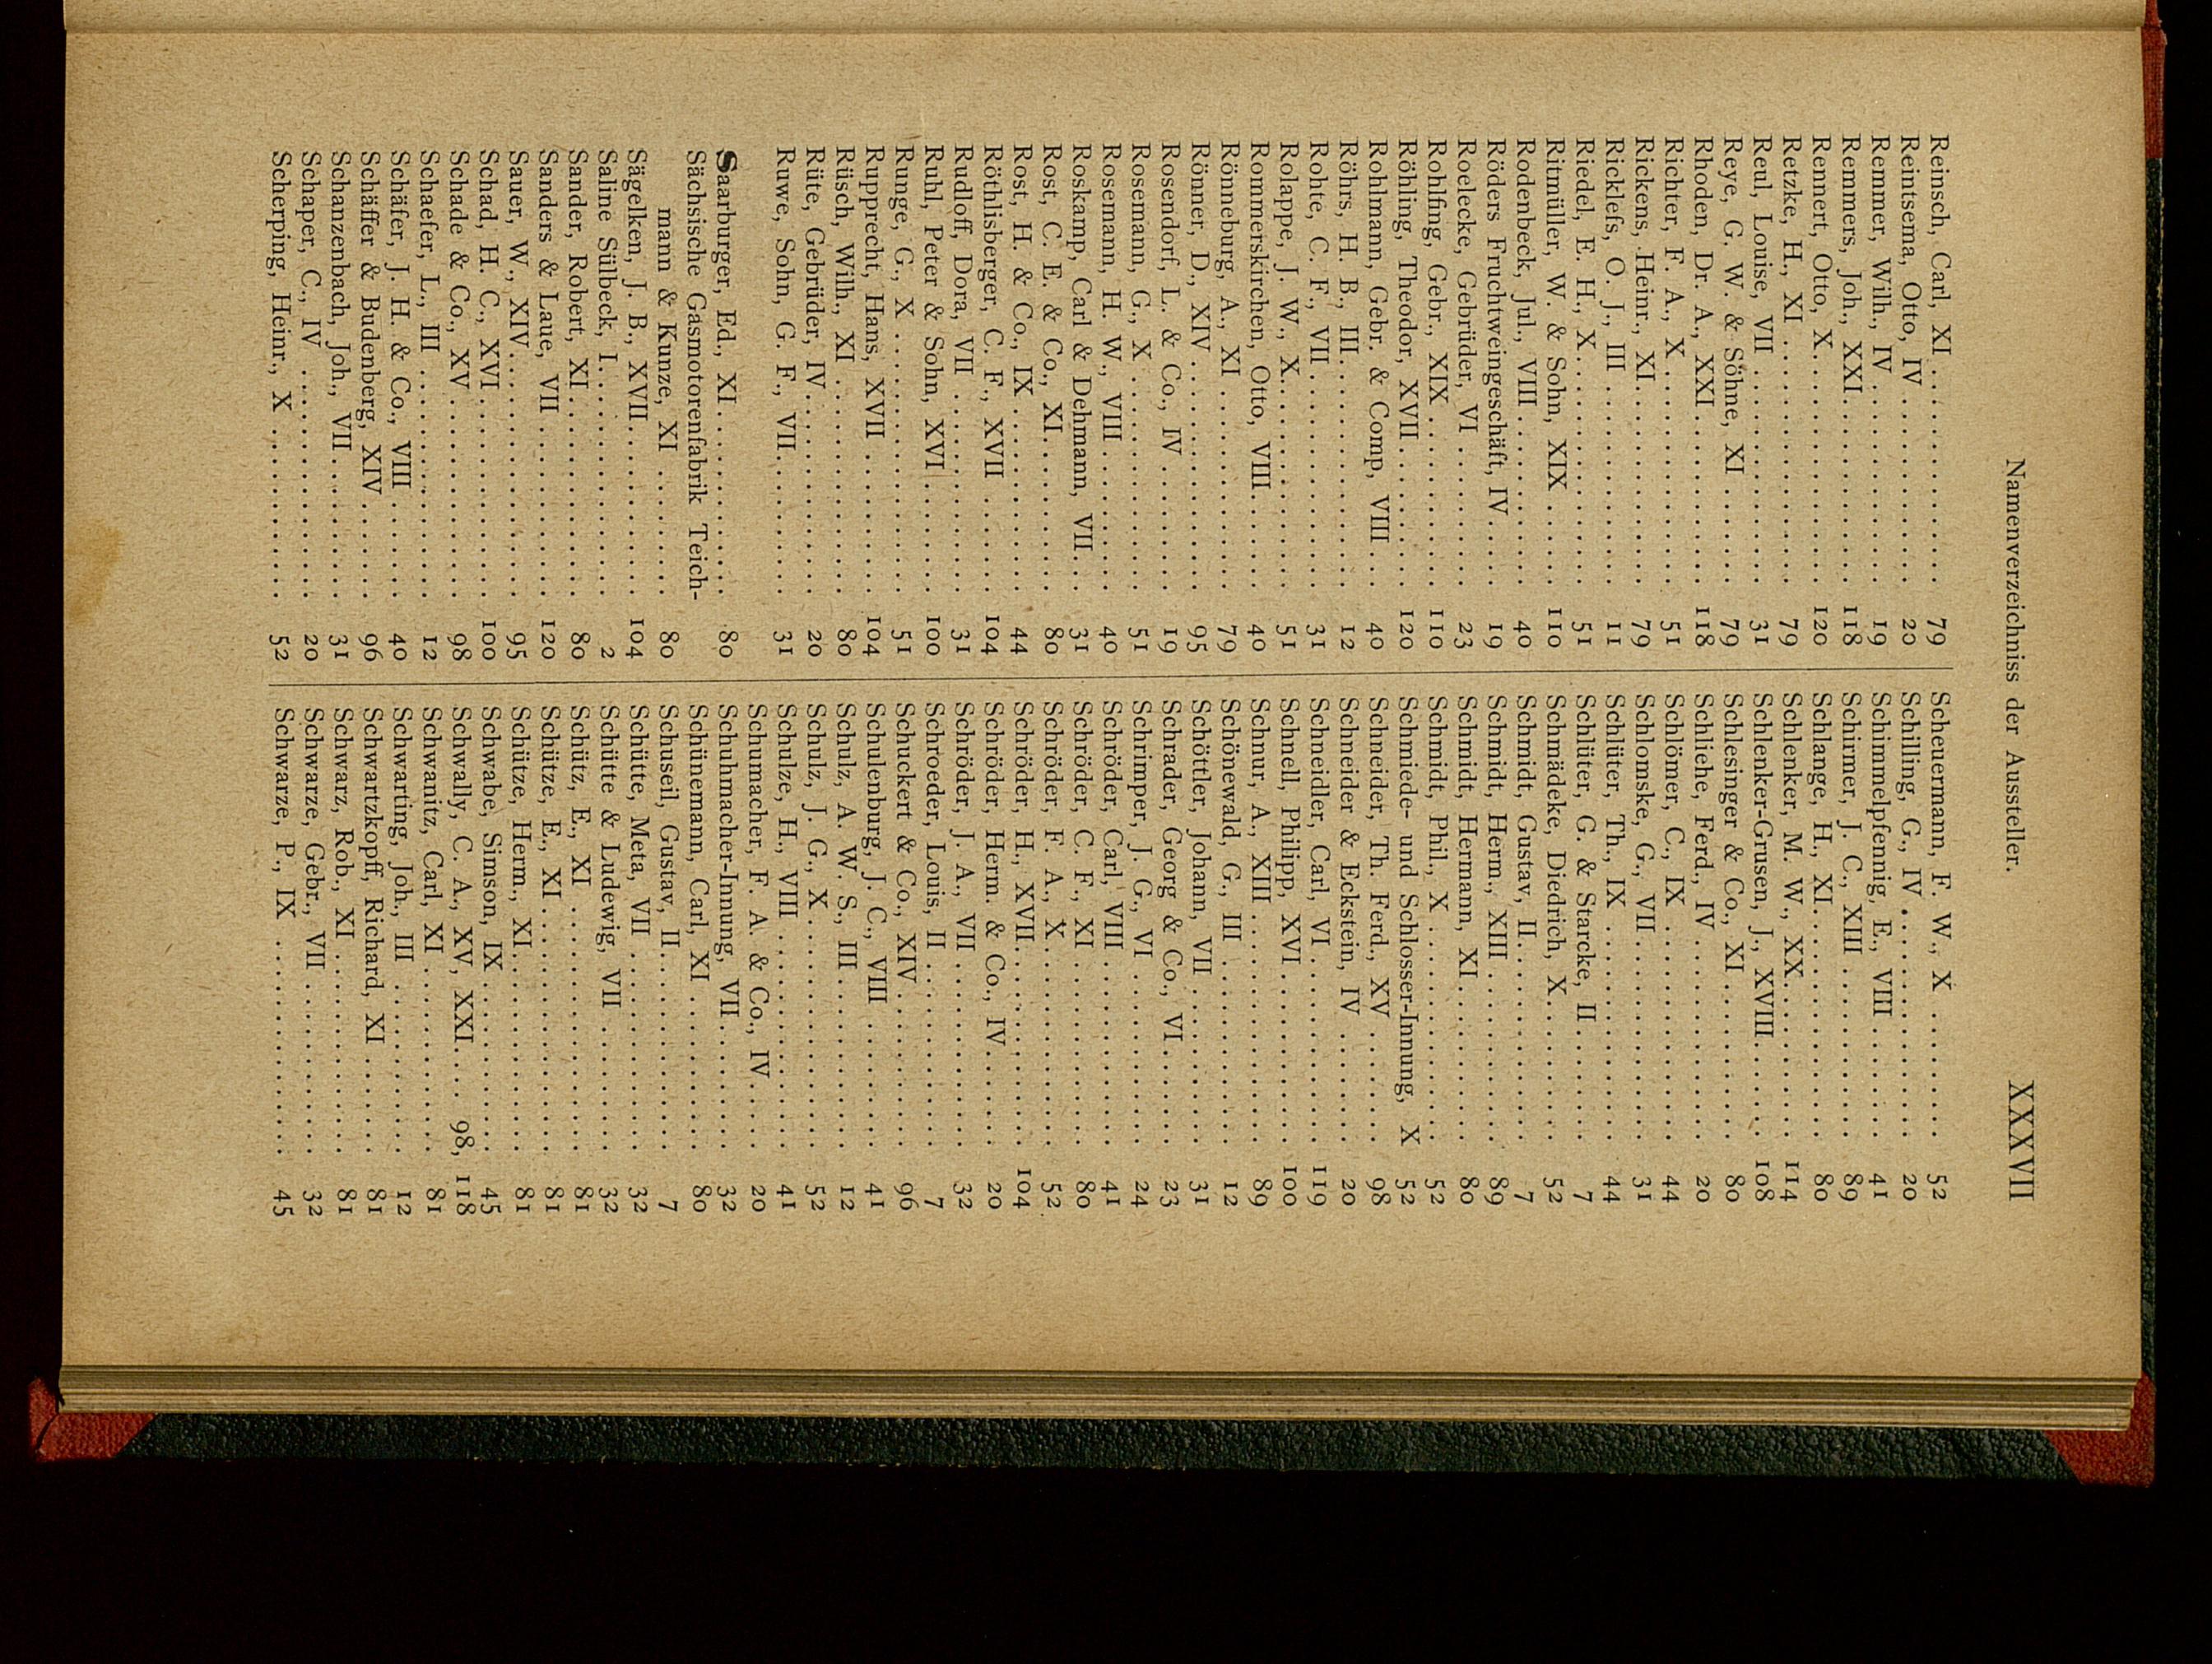 Namenverzeichniss der Aussteller. XXXVII
Reinsch, Carl, XI .................. 79
Reintsema, Otto, IV ............... 20
Remmer, Wilh., IV ................ 19
Remmers, Joh., XXI ............... 118
Rennert, Otto, X .................. 120
Retzke, H., XI ..................... 79
Reul, Louise, VII .................. 31
Reye, G. W. & Söhne, XI ........ 79
Rhoden, Dr. A., XXI .............. 118
Richter, F. A., X ................... 51
Rickens, Heinr., XI ................ 79
Ricklefs, O. J., III .................. 11
Riedel, E. H., X .................... 51
Ritmüller, W. & Sohn, XIX ...... 110
Rodenbeck, Jul., VIII .............. 40
Röders Fruchtweingeschäft, IV ..... 19
Roelecke, Gebrüder, VI ........... 23
Rohlfing, Gebr., XIX .............. 110
Röhling, Theodor, XVII .......... 120
Rohlmann, Gebr. & Comp, VIII ... 40
Röhrs, H. B., III ................... 12
Rohte, C. F., VII ................... 31
Rolappe, J. W., X .................. 51
Rommerskirchen, Otto, VIII ....... 40
Rönneburg, A., XI ................ 79
Rönner, D., XIV ................... 95
Rosendorf, L. & Co., IV ......... 19
Rosemann, G., X .................. 51
Rosemann, H. W., VIII ........... 40
Roskamp, Carl & Dehmann, VII ... 31
Rost, C. E. & Co., XI ............ 80
Rost, H. & Co., IX ............... 44
Röthlisberger, C. F., XVII ....... 104
Rudloff, Dora, VII ................ 31
Ruhl, Peter & Sohn, XVI ........ 100
Runge, G., X ...................... 51
Rupprecht, Hans, XVII ........... 104
Rüsch, Wilh., XI .................. 80
Rüte, Gebrüder, IV ................ 20
Ruwe, Sohn, G. F., VII ........... 31
Saarburger, Ed., XI ................ 80
Sächsische Gasmotorenfabrik Teich-
mann & Kunze, XI .............. 80
Sägelken, J. B., XVII .............. 104
Saline Sülbeck, I .................. 2
Sander, Robert, XI ................ 80
Sanders & Laue, VII ............... 120
Sauer, W., XIV .................... 95
Schad, H. C., XVI ................. 100
Schade & Co., XV ................. 98
Schaefer, L., III .................... 12
Schäfer, J. H. & Co., VIII ....... 40
Schäffer & Budenberg, XIV ....... 96
Schanzenbach, Joh., VII ........... 31
Schaper, C., IV .................... 20
Scherping, Heinr., X ............... 52
Scheuermann, F. W., X ........... 52
Schilling, G., IV ................... 20
Schimmelpfennig, E., VIII ......... 41
Schirmer, J. C., XIII .............. 89
Schlange, H., XI ................... 80
Schlenker, M. W., XX ............. 114
Schlenker-Grusen, J., XVIII ....... 108
Schlesinger & Co., XI ............. 80
Schliehe, Ferd., IV ................ 20
Schlömer, C., IX ................... 44
Schlomske, G., VII ................ 31
Schlüter, Th., IX ................... 44
Schlüter, G. & Starcke, II ......... 7
Schmädeke, Diedrich, X ........... 52
Schmidt, Gustav, II ................ 7
Schmidt, Herm., XIII .............. 89
Schmidt, Hermann, XI ............. 80
Schmidt, Phil., X ................... 52
Schmiede- und Schlosser-Innung, X 52
Schneider, Th. Ferd., XV ......... 98
Schneider & Eckstein, IV ......... 20
Schneidler, Carl, VI ............... 119
Schnell, Philipp, XVI .............. 100
Schnur, A., XIII ................... 89
Schönewald, G., III ................ 12
Schöttler, Johann, VII ............. 31
Schrader, Georg & Co., VI ........ 23
Schrimper, J. G., VI ............... 24
Schröder, Carl, VIII ............... 41
Schröder, C. F., XI ................ 80
Schröder, F. A., X ................. 52
Schröder, H., XVII ................ 104
Schröder, Herm. & Co., IV ....... 20
Schröder, J. A., VII ............... 32
Schroeder, Louis, II ............... 7
Schuckert & Co., XIV ............. 96
Schulenburg, J. C., VIII .......... 41
Schulz, A. W. S., III ............... 12
Schulz, J. G., X .................... 52
Schulze, H., VIII ................... 41
Schumacher, F. A. & Co., IV ..... 20
Schuhmacher-Innung, VII .......... 32
Schünemann, Carl, XI ............. 80
Schuseil, Gustav, II ................ 7
Schütte, Meta, VII ................. 32
Schütte & Ludewig, VII ........... 32
Schütz, E., XI ...................... 81
Schütze, E., XI ..................... 81
Schütze, Herm., XI ................ 81
Schwabe, Simson, IX .............. 45
Schwally, C. A., XV, XXI .... 98, 118
Schwanitz, Carl, XI ................ 81
Schwarting, Joh., III ............... 12
Schwartzkopff, Richard, XI ....... 81
Schwarz, Rob., XI ................. 81
Schwarze, Gebr., VII .............. 32
Schwarze, P., IX ................... 45